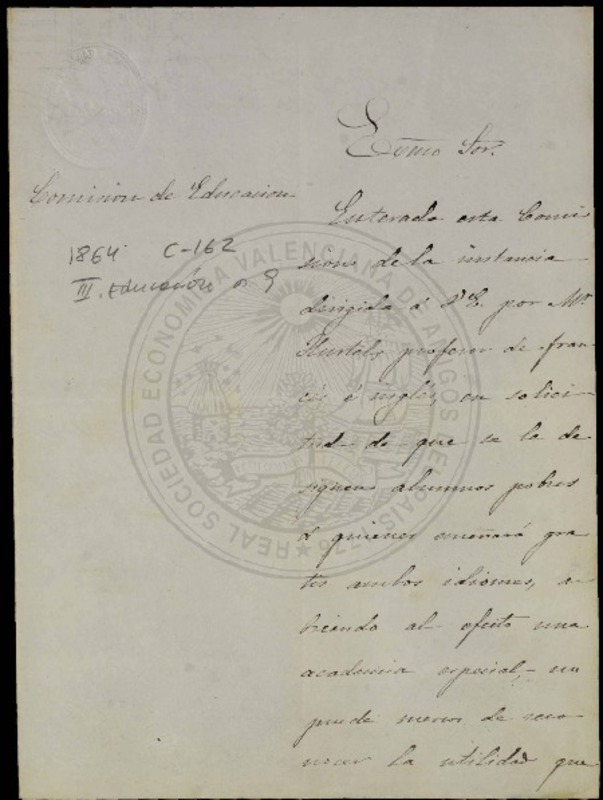 Exmo Sor.
Comision de Educacion
1864 C-162
III. Educación n. 9
Enterada esta Comi
sion de la instancia
dirigida á V.E. por Mr.
profesor de fran
cés é inglés, en solici-
tud de que se le de
signen alumnos pobres
á quienes enseñará gra
tis ambos idiomas, a-
briendo al efecto una
academia especial, no
puede menos de reco
nocer la utilidad que
REAL SOCIEDAD ECONOMICA VALENCIANA DE AMIGOS DEL PAIS 1776